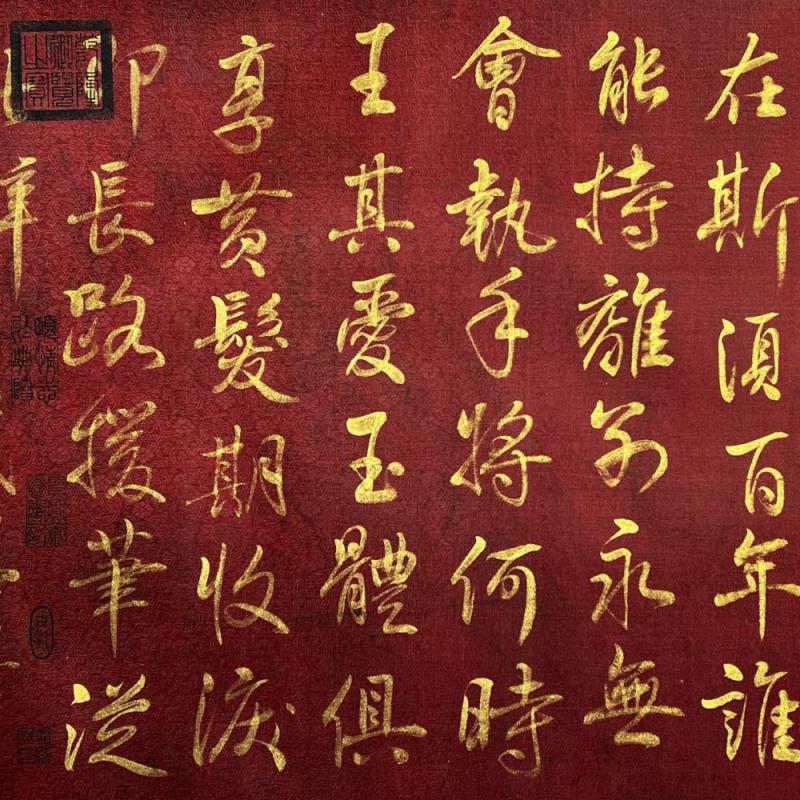 在斯須百年誰
能持離別永無
會執手將何時
王其愛玉體俱
享黃髮期收淚
即長路援筆從
乾隆御覽之寶